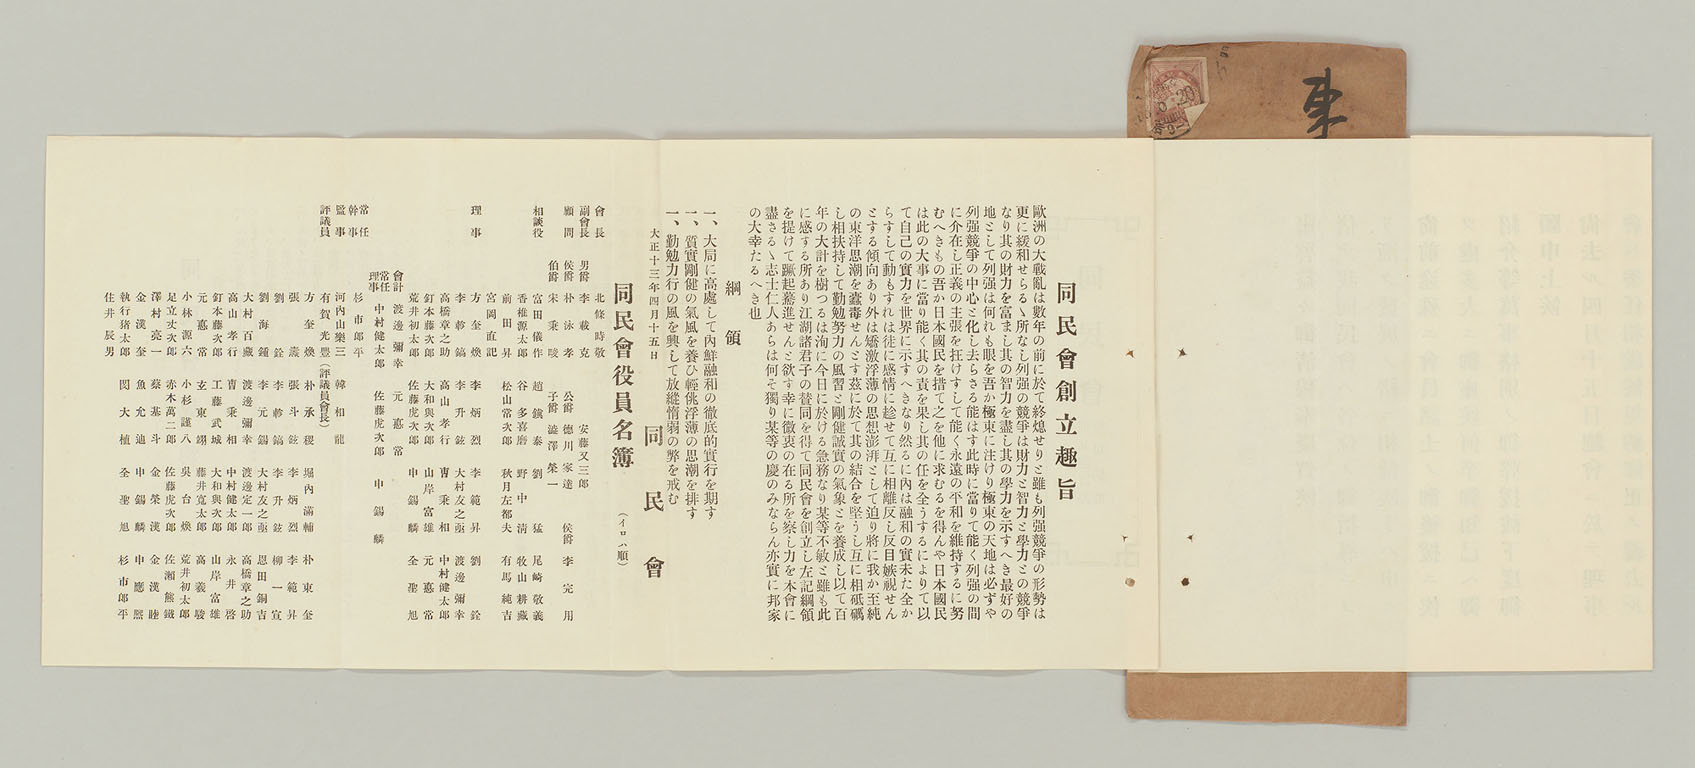 東
同民會創立趣旨
歐洲の大戰亂は數年の前に於て終熄せりと雖も列强競爭の形勢は
更に緩和せらるゝ所なし列强の競爭は財力と智力と學力との競爭
なり其の財力を富まし其の智力を盡し其の學力を示すへき最好の
地として列强は何れも眼を吾か極東に注けり極東の天地は必すや
列强競爭の中心と化し去らさる能はす此時に當りて能く列强の間
に介在し正義の主張を抂けすして能く永遠の平和を維持するに努
むへきもの吾か日本國民を措て之を他に求むるを得んや日本國民
は此の大事に當り能く其の責を果し其の任を全うするによりて以
て自己の實力を世界に示すへきなり然るに內は融和の實未た全か
らすして動もすれは徒に感情に趁せて互に相離反し反目嫉視せん
とする傾向あり外は矯激浮薄の思想澎湃として迫り將に我か至純
の東洋思潮を蠧毒せんとす茲に於て其の結合を堅うし互に相砥礪
し相扶持して勤勉努力の風習と剛健誠實の氣象とを養成し以て百
年の大計を樹つるは洵に今日に於ける急務なり某等不敏と雖も此
に感する所あり江湖諸君子の賛同を得て同民會を創立し左記綱領
を提けて蹶起驀進せんと欲す幸に徵衷の在る所を察し力を本會に
盡さるゝ志士仁人あらは何そ獨り某等の慶のみならん亦實に邦家
の大幸たるへき也
綱領
一、大局に高處して內鮮融和の徹底的實行を期す
一、質實剛健の氣風を養ひ輕佻浮薄の思潮を排す
一、勤勉力行の風を興して放縱惰弱の弊を戒む
大正十三年四月十五日
同民會
同民會役員名簿
(イロハ順)
會長 北條時敬
副會長 男爵 李載克 安藤又三郎
顧問 侯爵 朴泳孝 公爵 德川家達 侯爵 李完用
伯爵 宋秉畯 子爵 澁澤榮一
相談役 富田儀作 趙鎭泰 劉猛 尾崎敬義
香椎源太郎 谷多喜磨 野中淸 牧山耕藏
前田昇 松山常次郎 秋月左都夫 有馬純吉
宮岡直記
理事 方奎煥 李炳烈 李範昇 劉銓
李軫鎬 李升鉉 大村友之丞 渡邊彌幸
高橋章之助 高山孝行 曺秉相 中村健太郎
釘本藤次郎 大和與次郎 山岸富雄 元悳常
荒井初太郎 佐藤虎次郎 申錫麟 全聖旭
會計 渡邊彌幸 元悳常
常任理事 中村健太郎 佐藤虎次郎 申錫麟
常任幹事 杉市郎平
監事 河內山樂三 韓相龍
評議員 有賀光豊(評議員會長)
方奎煥 朴承稷 堀內滿輔 朴東奎
張燾 張斗鉉 李炳烈 李範昇
劉銓 李軫鎬 李升鉉 柳一宣
劉海鍾 李元錫 大村友之丞 恩田銅吉
大村百藏 渡邊彌幸 渡邊定一郎 高橋章之助
高山孝行 曺秉相 中村健太郎 永井啓
釘本藤次郎 工藤武城 大和與次郎 山岸富雄
元悳常 玄東翊 藤井寬太郎 高義駿
小林源六 小杉謹八 吳台煥 荒井初太郎
足立丈次郎 赤木萬二郎 佐藤虎次郎 佐瀨熊鐵
澤村亮一 蔡基斗 金榮漢 金漢睦
金漢奎 魚允迪 申錫麟 申應熙
執行猪太郎 閔大植 全聖旭 杉市郎平
住井辰男